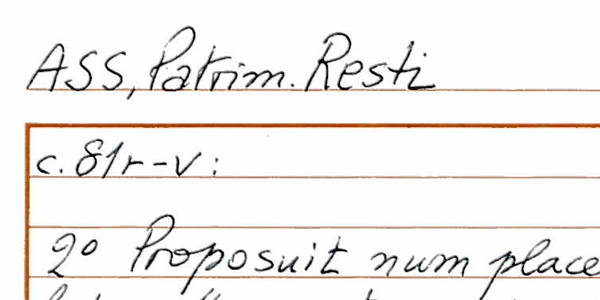 ASS, Patrim. Resti
c. 81r-v:
2° Proposuit num place